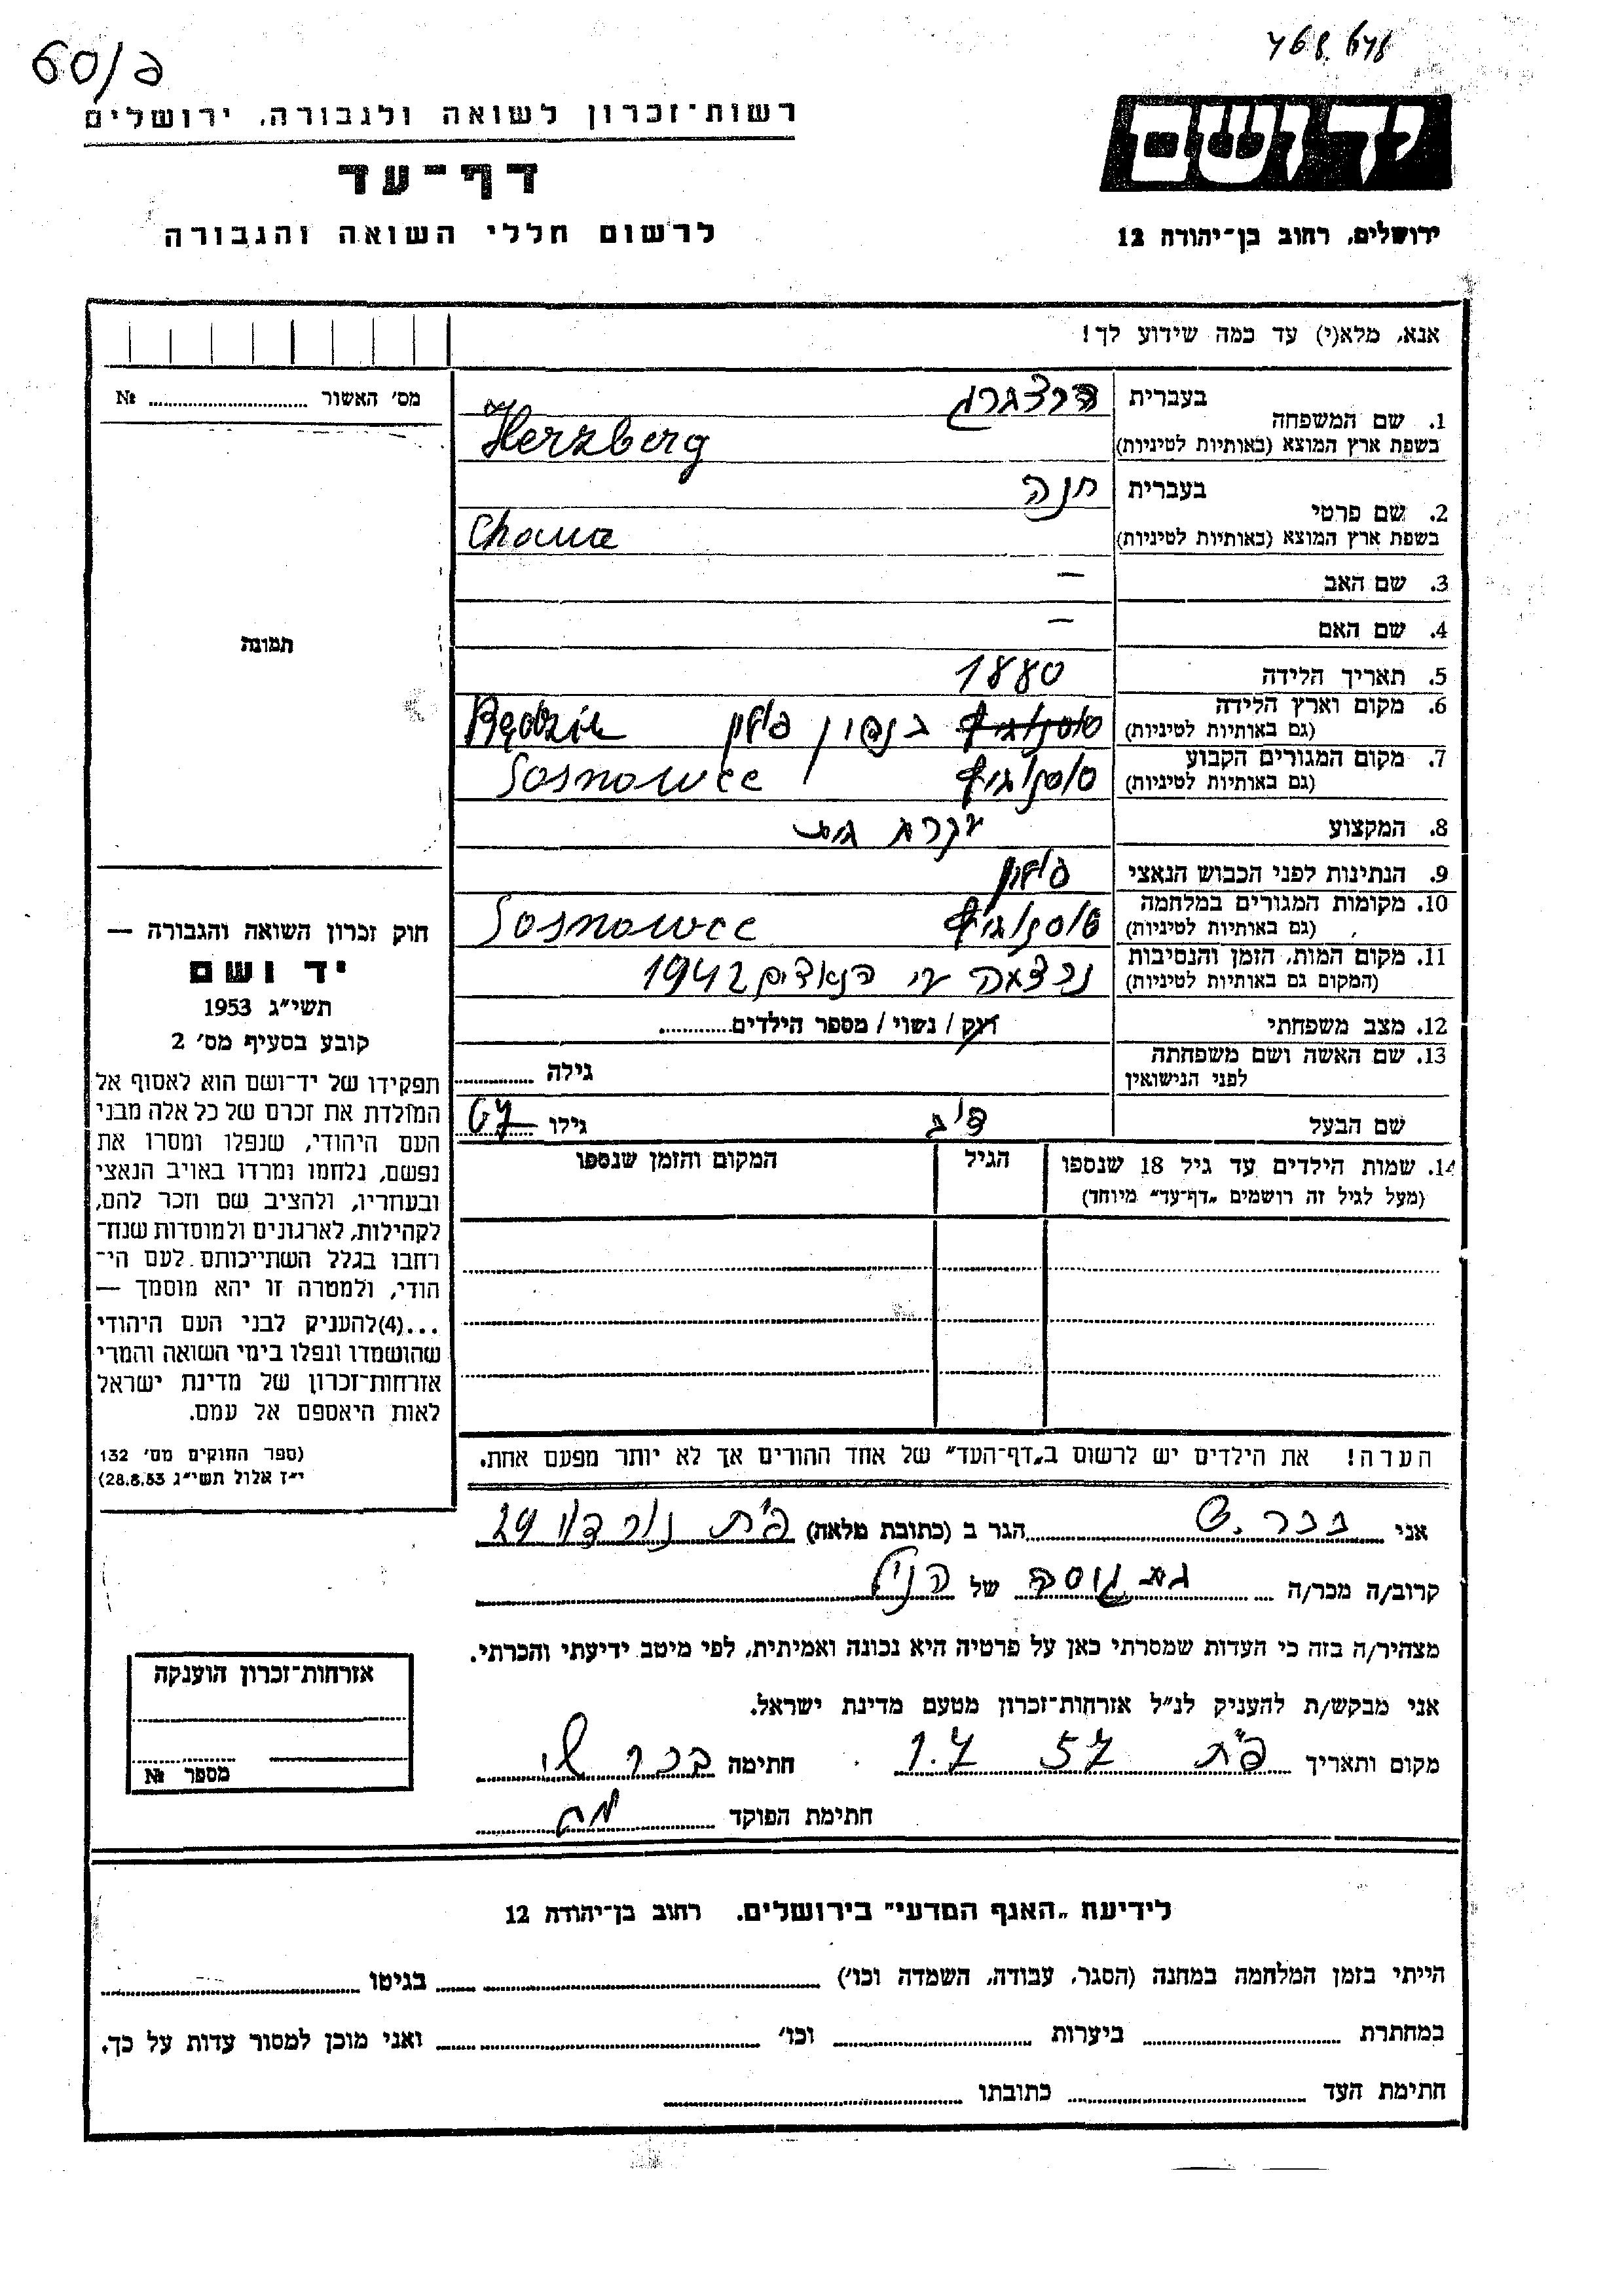 60/פ
768.678
רשות־זכרון לשואה ולגבורה, ירושלים
ידושם
דף־עד
לרשום חללי השואה והגבורה
ירושלים, רחוב בן־יהודה 12
אנא, מלא(י) עד כמה שידוע לך!
מס׳ האשור № 
תמונה
1. שם המשפחה בעברית הרצברג
בשפת ארץ המוצא (באותיות לטיניות) Herzberg
2. שם פרטי בעברית חנה
בשפת ארץ המוצא (באותיות לטיניות) Chana
3. שם האב —
4. שם האם —
5. תאריך הלידה 1880
6. מקום וארץ הלידה (גם באותיות לטיניות) בנדין פולין Będzin
7. מקום המגורים הקבוע (גם באותיות לטיניות) סוסנוביץ Sosnowce
8. המקצוע עקרת בית
9. הנתינות לפני הכבוש הנאצי פולין
10. מקומות המגורים במלחמה (גם באותיות לטיניות) סוסנוביץ Sosnowce
11. מקום המות, הזמן והנסיבות (המקום גם באותיות לטיניות) נרצחה ע״י הנאצים 1942
12. מצב משפחתי רוק / נשוי / מספר הילדים
13. שם האשה ושם משפחתה לפני הנישואין גילה
שם הבעל גילו 67
14. שמות הילדים עד גיל 18 שנספו הגיל המקום והזמן שנספו
(מעל לגיל זה רושמים „דף־עד״ מיוחד)
חוק זכרון השואה והגבורה —
יד ושם
תשי״ג 1953
קובע בסעיף מס׳ 2
תפקידו של יד־ושם הוא לאסוף אל
המולדת את זכרם של כל אלה מבני
העם היהודי, שנפלו ומסרו את
נפשם, נלחמו ומרדו באויב הנאצי
ובעוזריו, ולהציב שם וזכר להם,
לקהילות, לארגונים ולמוסדות שנח־
רבו בגלל השתייכותם לעם הי־
הודי, ולמטרה זו יהא מוסמך —
...(4)להעניק לבני העם היהודי
שהושמדו ונפלו בימי השואה והמרי
אזרחות־זכרון של מדינת ישראל
לאות היאספם אל עמם.
(ספר החוקים מס׳ 132
י״ז אלול תשי״ג 28.8.53)
הערה! את הילדים יש לרשום ב„דף־העד״ של אחד ההורים אך לא יותר מפעם אחת.
אני בכר. ש הגר ב (כתובת מלאה) פ״ת נורדוי 29
קרוב/ה מכר/ה של הנ״ל
מצהיר/ה בזה כי העדות שמסרתי כאן על פרטיה היא נכונה ואמיתית, לפי מיטב ידיעתי והכרתי.
אני מבקש/ת להעניק לנ״ל אזרחות־זכרון מטעם מדינת ישראל.
מקום ותאריך פ״ת 57 1.7 חתימה בכר
חתימת הפוקד
אזרחות־זכרון הוענקה
מספר №
לידיעת „האגף המדעי״ בירושלים. רחוב בן־יהודה 12
הייתי בזמן המלחמה במחנה (הסגר, עבודה, השמדה וכו׳) בגיטו
במחתרת ביערות וכו׳ ואני מוכן למסור עדות על כך.
חתימת העד כתובתו